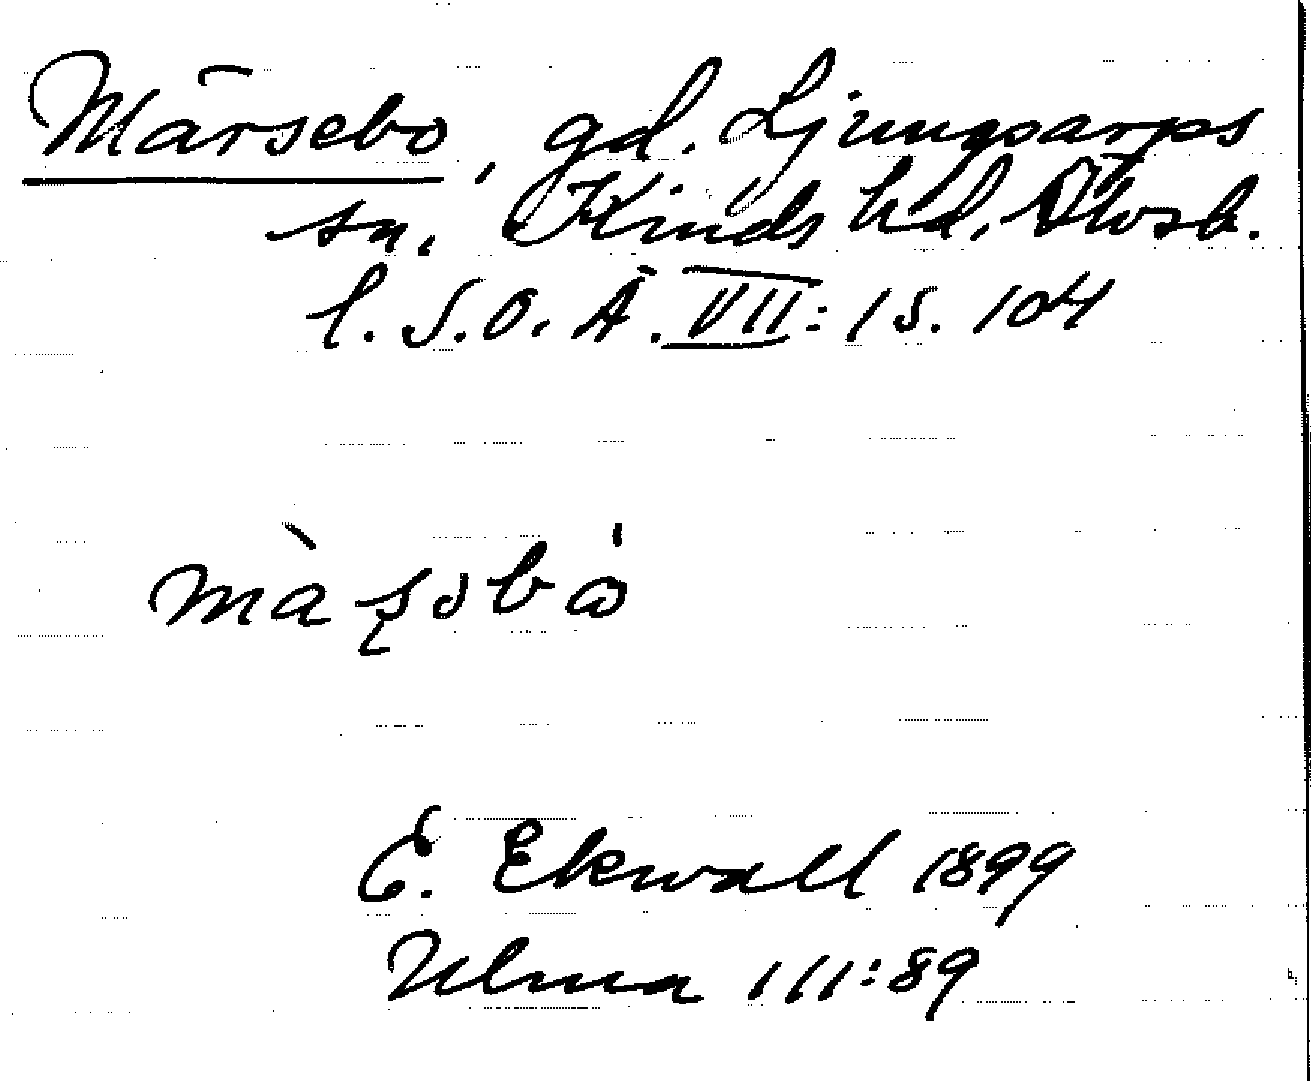 Märsebo, gd. Ljungsarps
sn. Kinds hd, Älvsb.
l. S.O.Ä. VII:1 s. 104
E. Ekwall 1899
Ulma 111:89